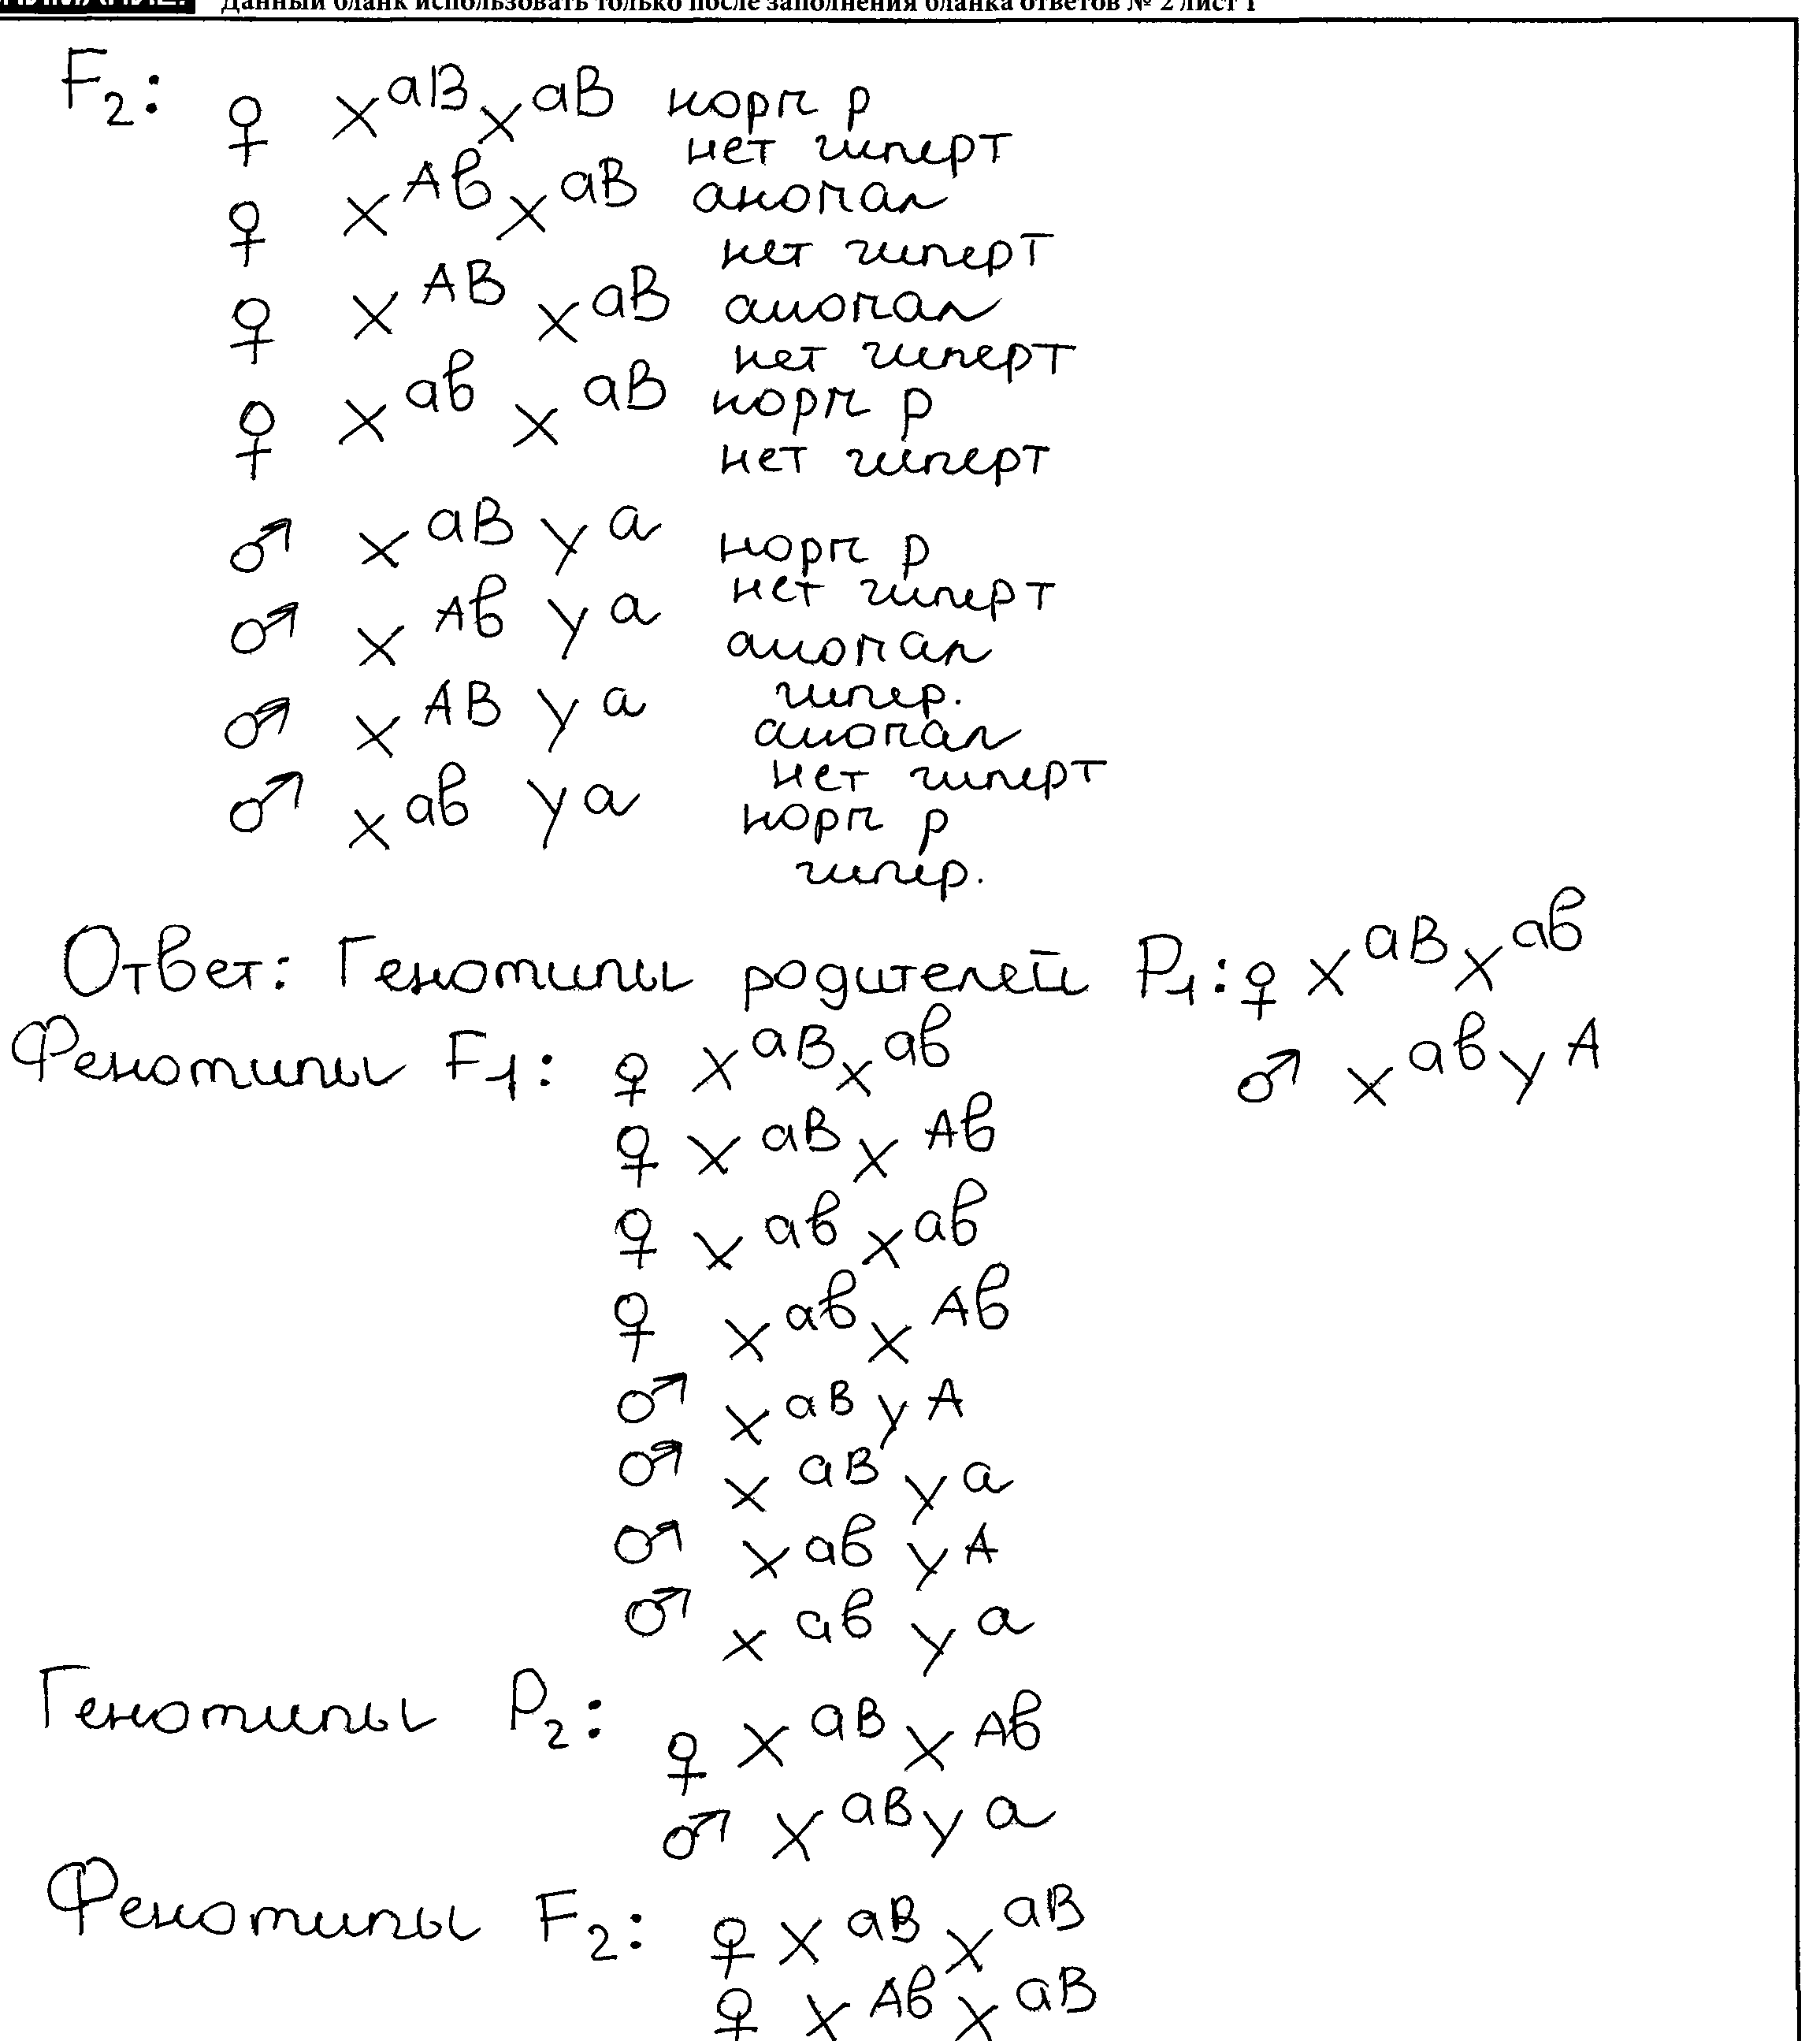 Данный бланк использовать только после заполнения бланка ответов № 2 лист 1
F₂: ♀ X^aB X^aB норм р
нет гиперт
♀ X^Aв X^aB аномал
нет гиперт
♀ X^AB X^aB аномал
нет гиперт
♀ X^aв X^aB норм р
нет гиперт
♂ X^aB У^a норм р
нет гиперт
♂ X^Aв У^a аномал
гипер.
♂ X^AB У^a аномал
нет гиперт
♂ X^aв У^a норм р
гипер.
Ответ: Генотипы родителей P₁: ♀ X^aB X^aв
♂ X^aв У^A
Фенотипы F₁: ♀ X^aB X^aв
♀ X^aB X^Aв
♀ X^aв X^aв
♀ X^aв X^Aв
♂ X^aB У^A
♂ X^aB У^a
♂ X^aв У^A
♂ X^aв У^a
Генотипы P₂: ♀ X^aB X^Aв
♂ X^aB У^a
Фенотипы F₂: ♀ X^aB X^aB
♀ X^Aв X^aB